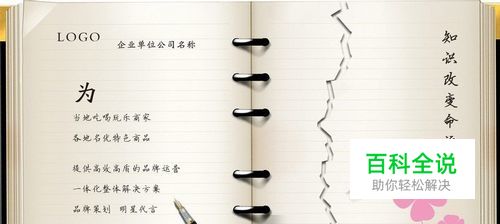 LOGO
企业单位公司名称
为
当地吃喝玩乐商家
各地名优特色商品
提供高效高质的品牌运营
一体化整体解决方案
品牌策划 明星代言
知识改变命
百科全说
助你轻松解决